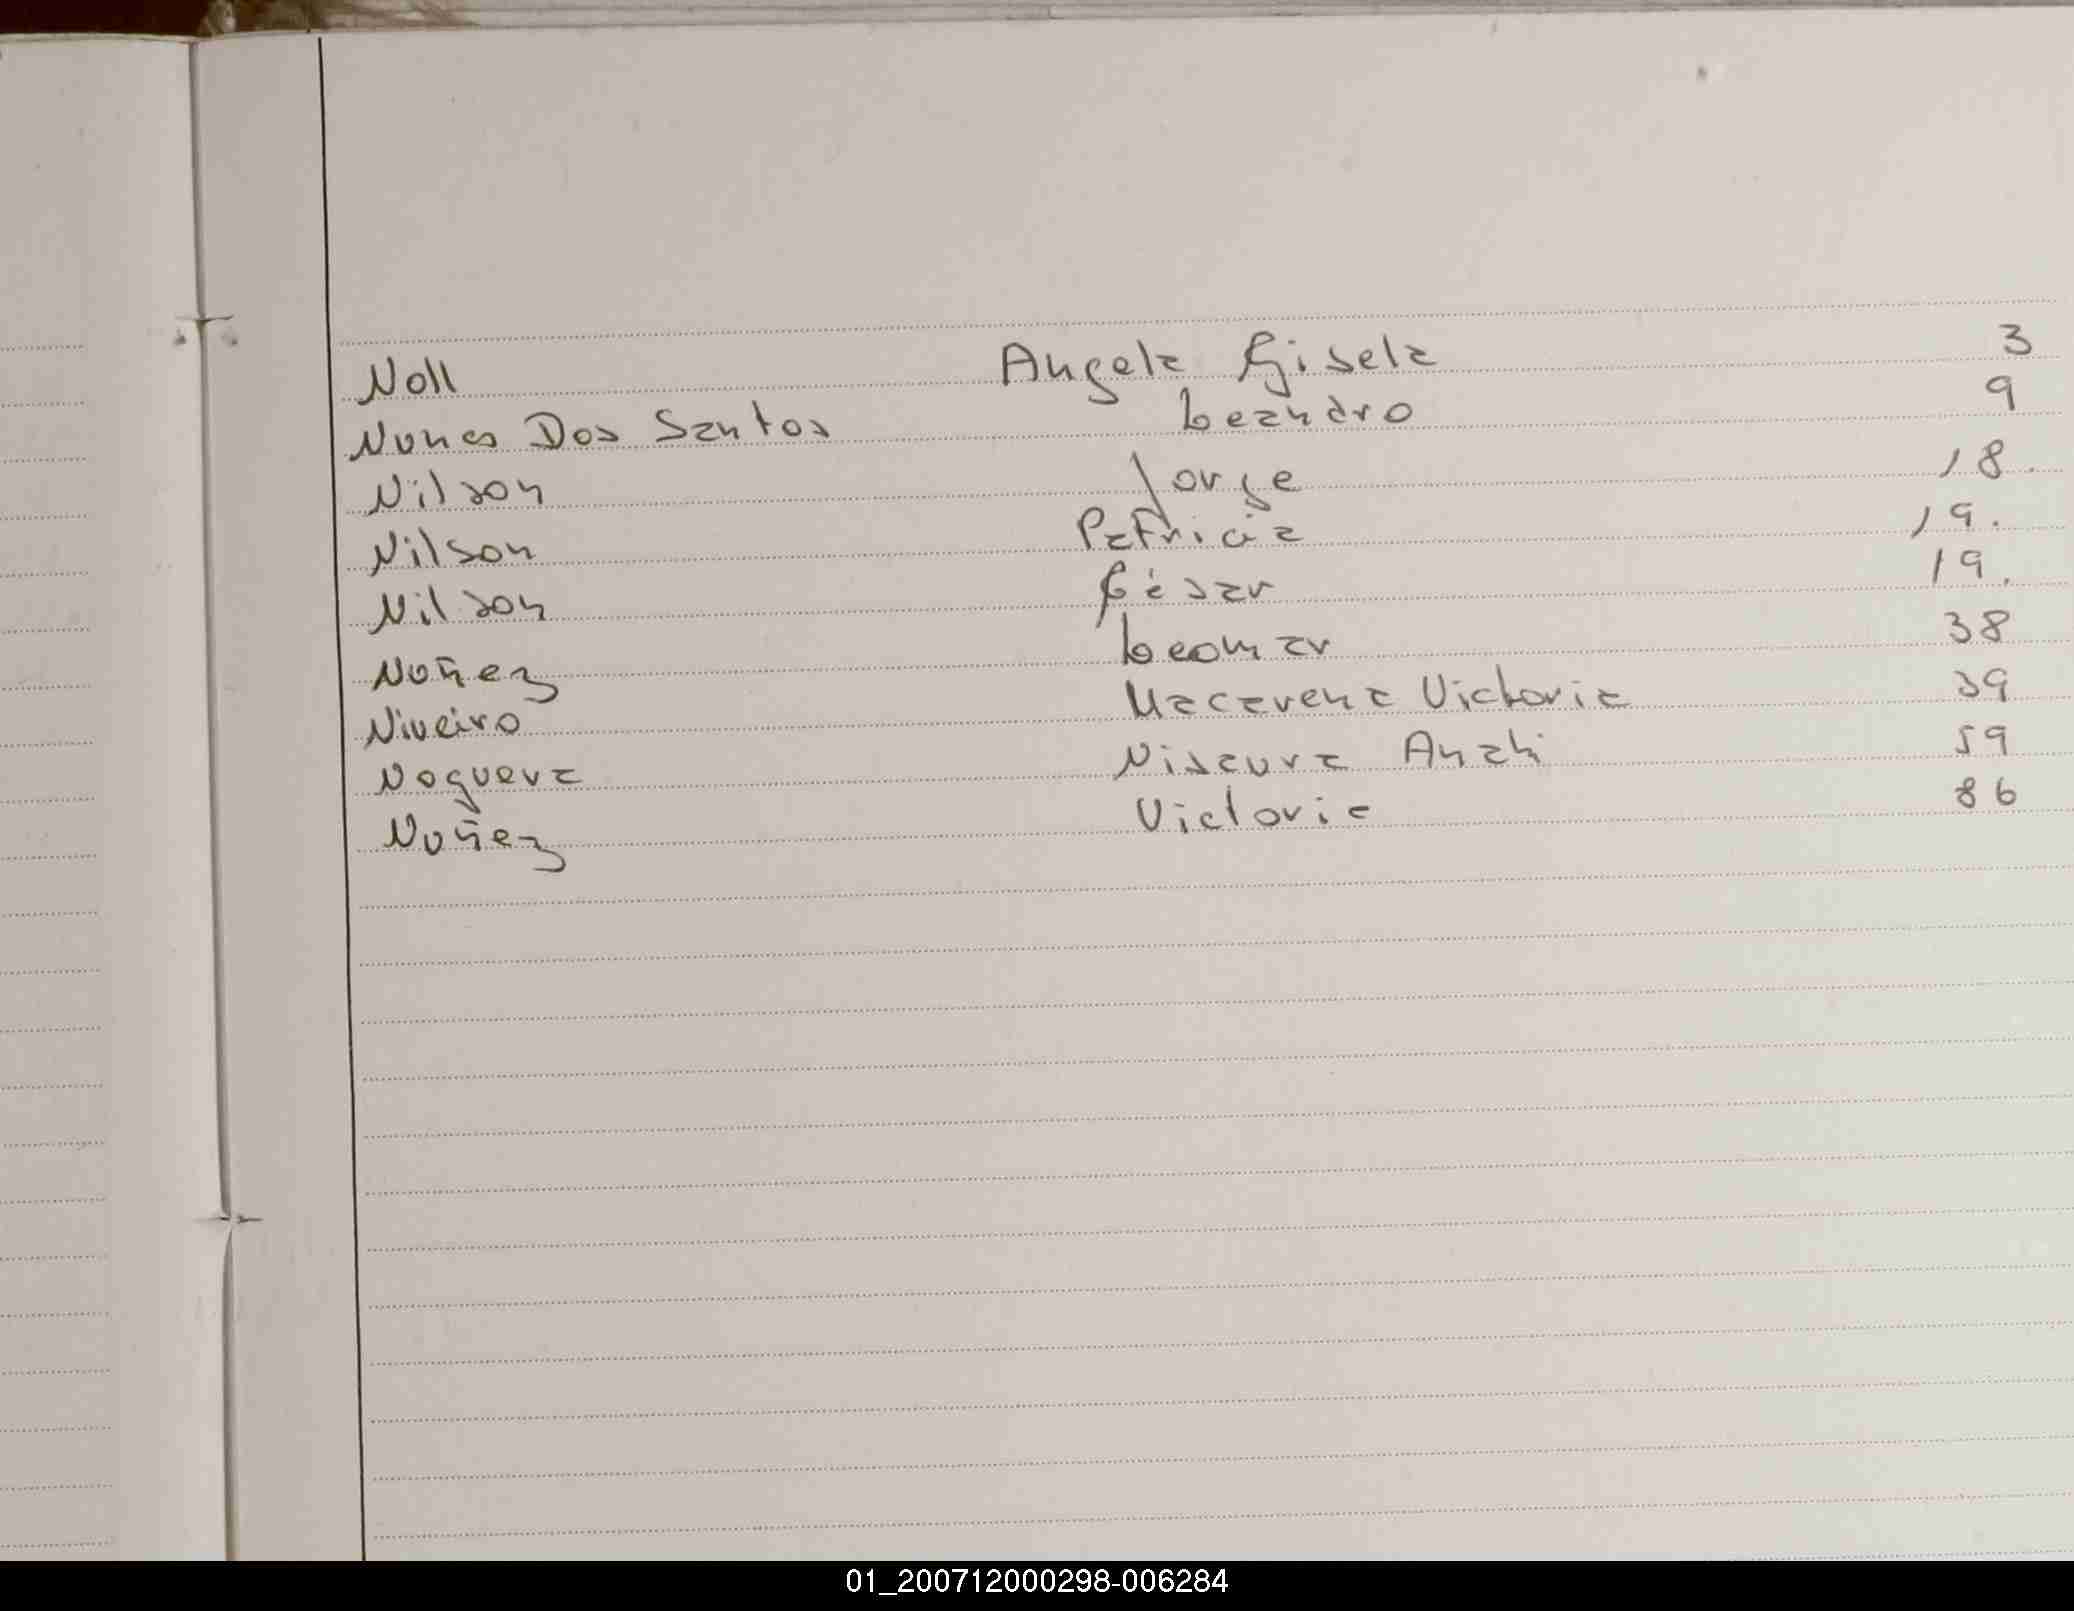 Noll Angela Gisela 3
Nunes Dos Santos Leandro 9
Nilson Jorge 18.
Nilson Patricia 19.
Nilson César 19.
Nuñez Leomar 38
Niveiro Macarena Victoria 39
Noguera Nisaura Anahi 59
Nuñez Victoria 86
01_200712000298-006284